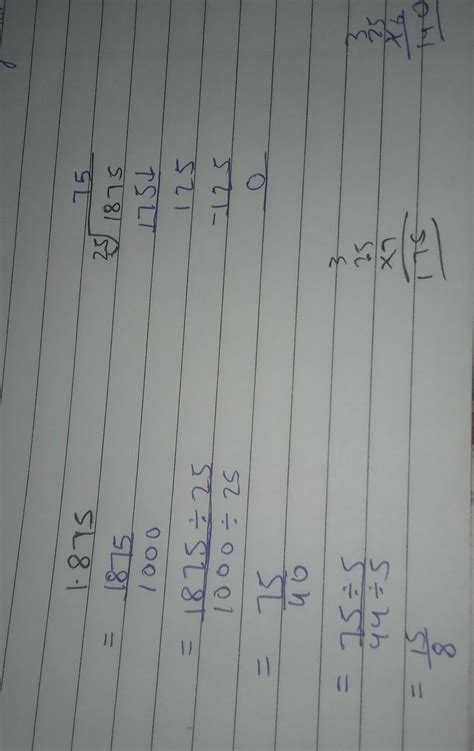 1.875
= 1875
1000
= 1875 ÷ 25
1000 ÷ 25
= 75
40
= 75 ÷ 5
44 ÷ 5
= 15
8
75
25 1875
175↓
125
-125
0
3
25
x7
175
3
25
x6
140